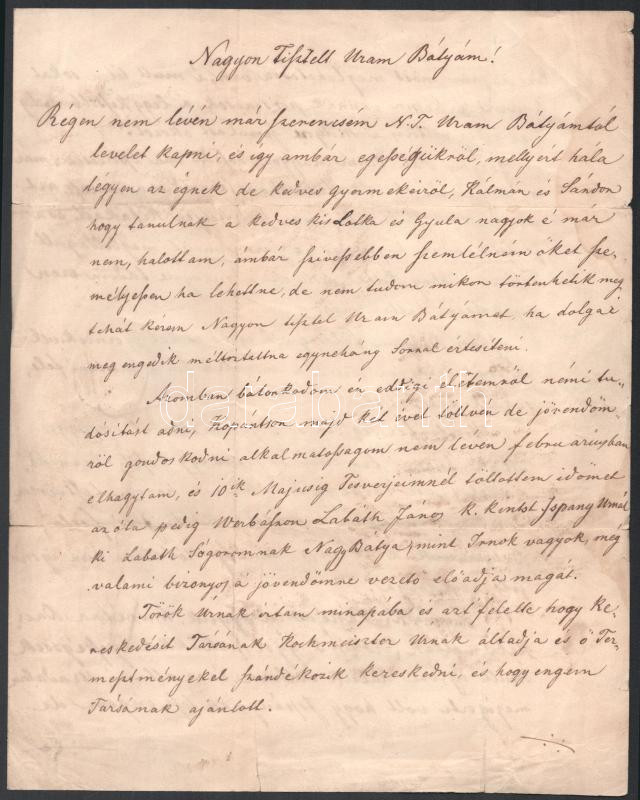 Nagyon Tisztelt Uram Bátyám!
Régen nem lévén már szerencsém N.T. Uram Bátyámtól
levelet kapni, és így ámbár egésségükről, mellyért hála
légyen az égnek de kedves gyermekeiről, Kálmán és Sándor
hogy tanulnak a kedves kis Lotka és Gyula nagyok é már
nem, halottam, ámbár szivessebben szemlélném őket sze-
mélyessen ha lehettne, de nem tudom mikor történhetik meg
tehát kérem Nagyon tisztel Uram Bátyámat, ha dolgai
meg engedik méltoztattna egynehány sorral értesiteni.
Azomban bátorkodom ez eddigi életemről némi tu-
dósitást adni, Kopántson majd két évet töltvén de jövendőm-
ről gondoskodni alkalmatosságom nem leven februariusban
elhagytam, és 10ik Majusig Tesverjeimnél töltottem időmet
az óta pedig Werbászon Labáth János k. kintst Ispany Urnál
ki Labáth Sógoromnak Nagy Bátya, mint Irnok vagyok, még
valami bizonyos á jövendőmne vezető előadja magát.
Török Urnak irtam minapába és azt felelte hogy Ke-
reskedését Társának Kochmeiszter Urnak általadja és ő Ter-
mesztményekel szándékozik kereskedni, és hogy engem
Társának ajánlott.
darabanth.com